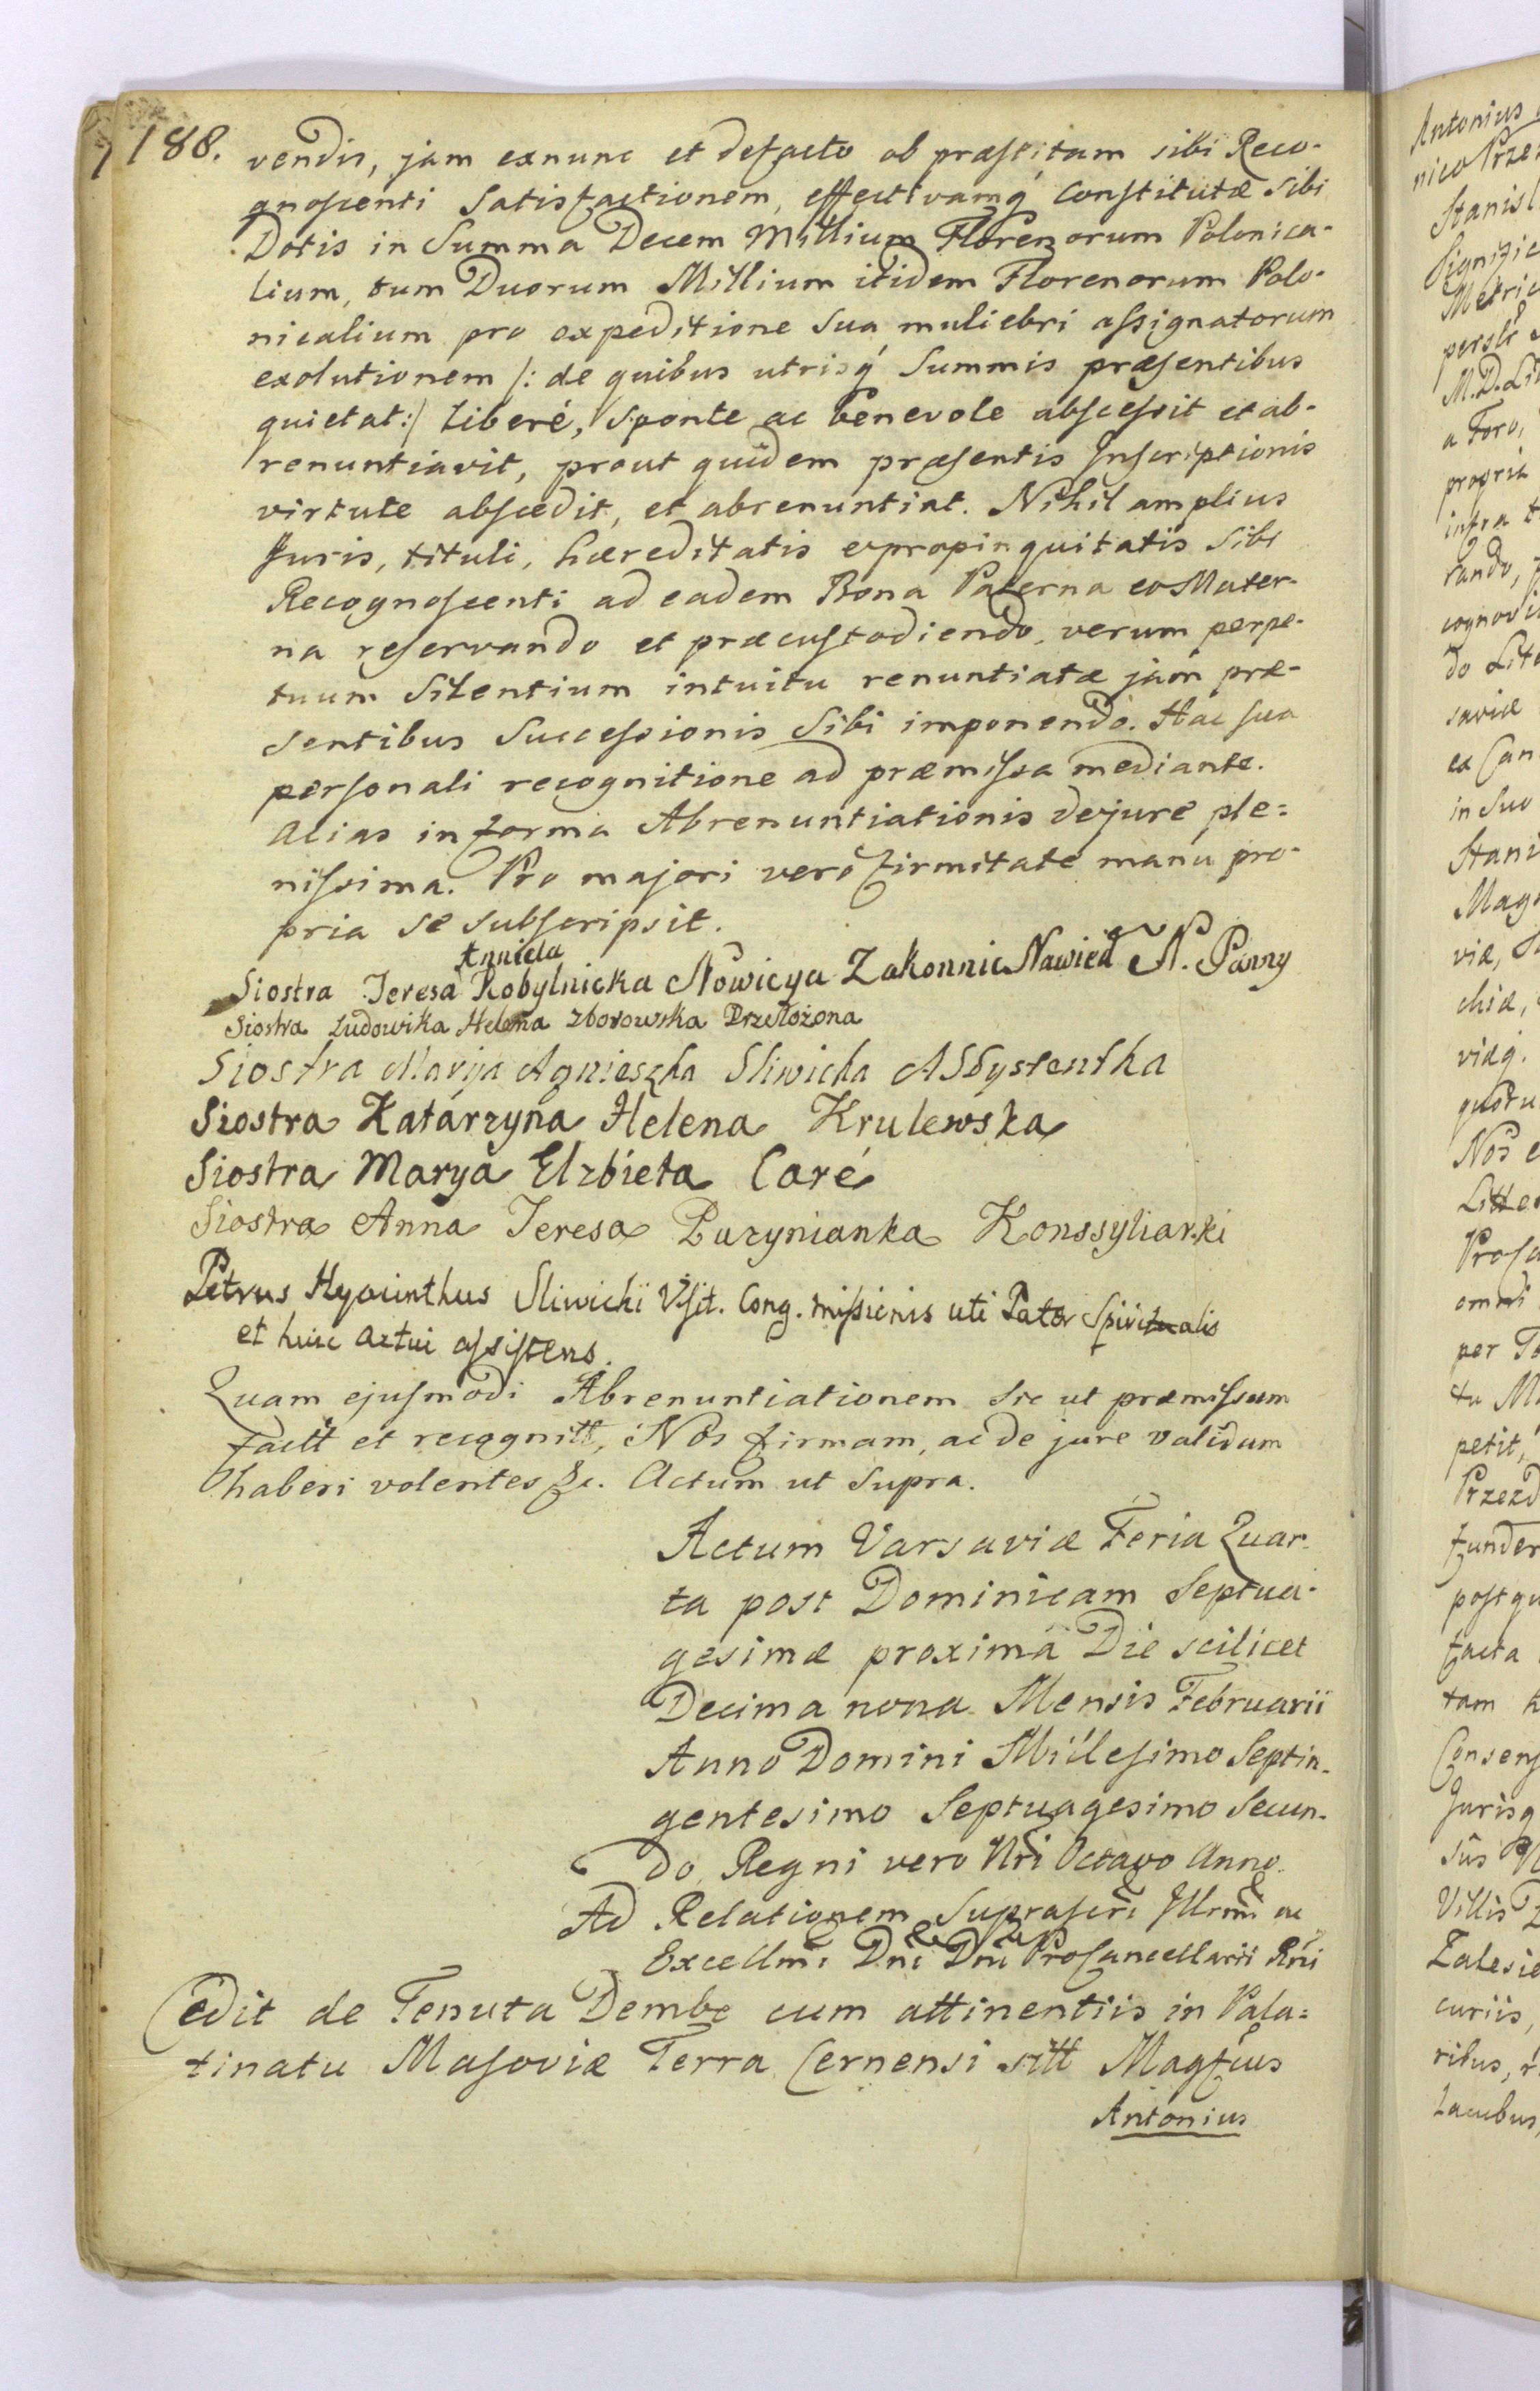 188.
vendis, jam exnunc et defacto ob præstitam sibi Reco-
gnoscenti Satisfactionem, effectivamq́ constitutæ Sibi
Dotis in Summa Decem Millium Florenorum Polonica-
lium, tum Duorum Millium itidem Florenorum Polo-
nicalium pro expeditione Sua muliebri assignatorum
exolutionem /: de quibus utrisq́ Summis præsentibus
quietat:/ Liberé, Sponte ac benevole abscessit et ab-
renuntiavit, prout quidem præsentis Inscriptionis
virtute abscedit, et abrenuntiat. Nihil amplius
Juris, tituli, hæreditatis expropinquitatis Sibi
Recognoscenti ad eadem Bona Paterna eo Mater-
na reservando et præcustodiendo, verum perpe-
tuum Silentium intuitu renuntiatæ jam præ-
sentibus Successionis Sibi imponendo. Hac sua
personali recognitione ad præmissa mediante.
Alias in forma Abrenuntiationis dejure ple=
nissima. Pro majori veró firmitate manu pro-
pria se subscripsit.
Anniela
Siostra Teresa Kobylnicka Nowicya Zakonnic Nawied N. Panny
Siostra Ludowika Helena Zborowska Przełożona
Siostra Marya Agnieszka Sliwicka Assystentka
Siostra Katárzyna Helena Krulewska
Siostra Marya Elzbieta Caré
Siostra Anna Teresa Puzynianka Konssyliarki
Petrus Hyacinthus Sliwicki Visit. Cong. Missionis uti Pater Spiritualis
et huic actui assistens.
Quam ejusmodi Abrenuntiationem Sic ut præmissum
factt et recognitt, Nos firmam, ac de jure validam
haberi volentes &c. Actum ut Supra.
Actum Varsaviæ Feria Quar-
ta post Dominicam Septua-
gesimæ proximâ Die scilicet
Decima nona Mensis Februarii
Anno Domini Millesimo Septin-
gentesimo Septuagesimo Secun-
do, Regni vero Nri Octavo Anno.
Ad Relationem Suprascri Illrmi ac
Excellmi Dni Dni ProCancellarii Rni
Cedit de Tenuta Dembe cum attinentiis in Pala=
tinatu Masoviæ Terra Cernensi sitt Magfcus
Antonius
Antonius
nico Prze
Stanisl
Signific
Metric
M.D. Li
a Foro,
proprie
infra t
rando,
cognovi
do Lit
saviæ
ex Can
in Suo
Stani
Mag
viæ,
chiæ,
viæq.
quotu
Nos e
Litte
Prosa
omni
per To
tu M
petit,
Przezd
funder
post qu
facta
tam h
Consens
Jurisq
Sus N
Villis
Zalesie
curiis,
ribus, r
Lacubus,